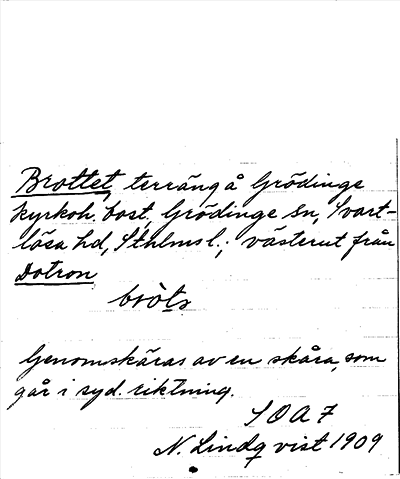 Brottet, terräng å Grödinge
kyrkoh. bost., Grödinge sn, Svart-
lösa hd, Sthlms l.; västerut från
Dotron
bròts
Genomskäras av en skåra, som
går i syd. riktning.
SOAF
N. Lindqvist 1909